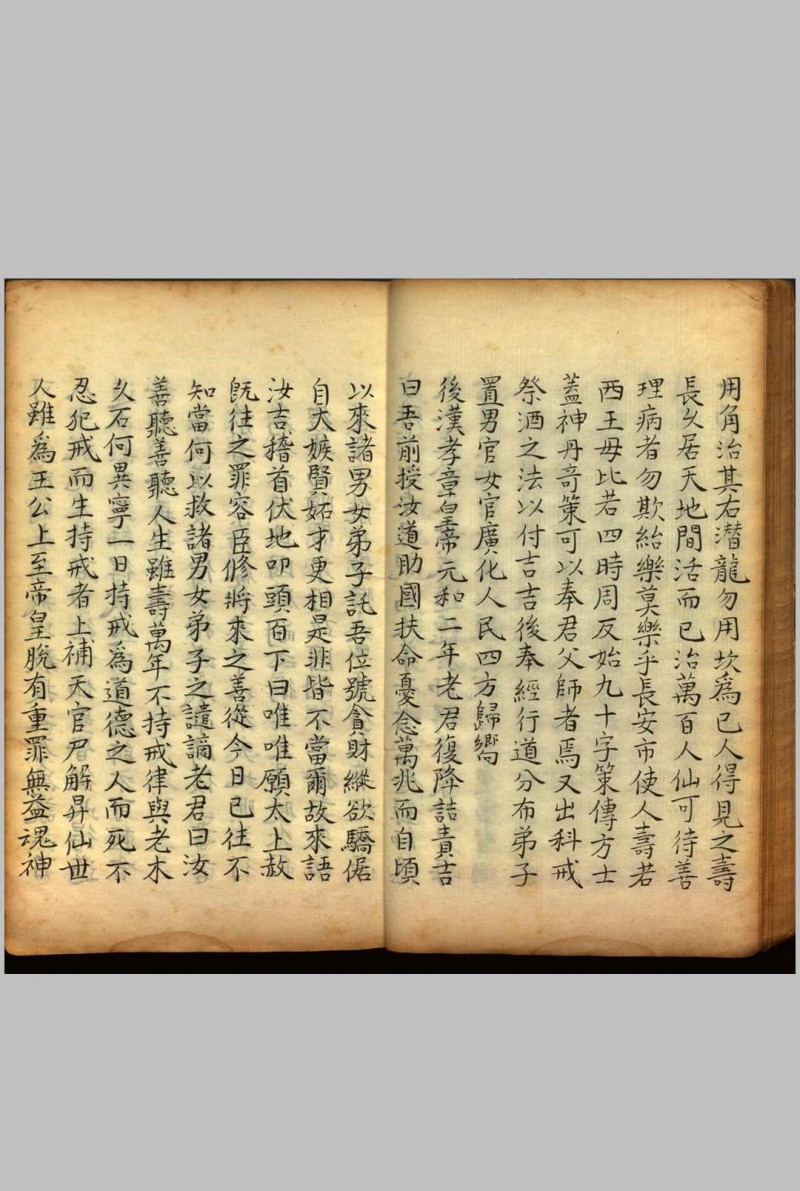 用角治其右潛龍勿用坎為已人得見之壽
長久居天地間活而已治萬百人仙可待善
理病者勿欺紿樂莫樂乎長安市使人壽若
西王母比若四時周反始九十字策傳方士
蓋神丹奇策可以奉君父師者焉又出科戒
祭酒之法以付吉吉後奉經行道分布弟子
置男官女官廣化人民四方歸嚮
後漢孝章皇帝元和二年老君復降詰責吉
曰吾前授汝道助國扶命憂念萬兆而自頃
以來諸男女弟子託吾位號貪財縱欲驕倨
自大嫉賢妬才更相是非皆不當爾故來語
汝吉稽首伏地叩頭百下曰唯唯願太上赦
既往之罪容臣修將來之善從今日已往不
知當何以救諸男女弟子之譴謫老君曰汝
善聽善聽人生雖壽萬年不持戒律與老木
久石何異寧一日持戒為道德之人而死不
忍犯戒而生持戒者上補天官尸解昇仙世
人雖為王公上至帝皇脫有重罪無益魂神